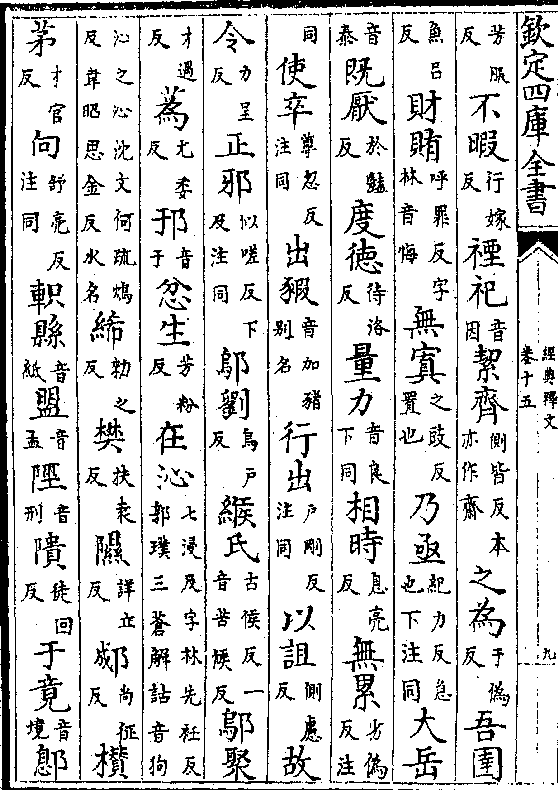 欽定四庫全書 經典釋文 卷十五 九
芳服反不暇行嫁反禋祀音因絜齊側皆反本亦作齋之為于偽反吾圉
魚呂反財賄呼罪反字林音悔無寘之豉反置也乃亟紀力反急也下注同大岳
音泰既厭於鹽反度德待洛反量力音良下同相時息亮反無累劣偽反注
同使卒尊忽反注同出豭音加豬别名行出户剛反注同以詛側慮反故
令力呈反正邪似嗟反下及注同鄔劉烏户反緱氏古侯反一音苦侯反鄔聚
才遇反蒍尤委反邘音于忿生芳粉反在沁七浸反字林先袵反郭璞三蒼解詁音狗
沁之沁沈文何疏鴆反韋昭思金反水名絺勑之反樊扶袁反隰詳立反郕尚征反欑
茅才官反向舒亮反注同軹縣音紙盟音孟陘音刑隤徒回反于竟音境鄎